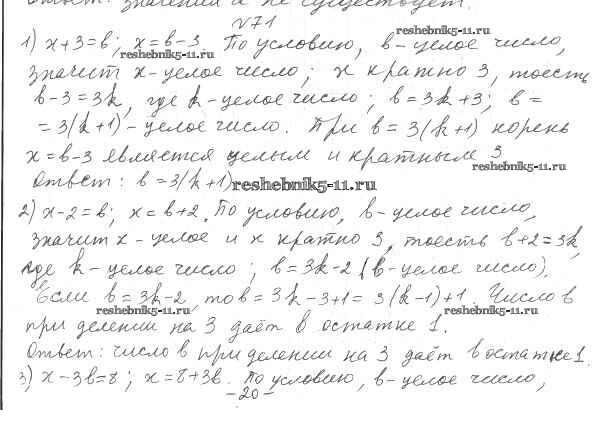 Ответ: значений и не существует.
№71
1) x+3=в; x=в-3. По условию, в-целое число,
reshebnik5-11.ru
reshebnik5-11.ru
значит x-целое число; x кратно 3, тоесть
в-3=3k, где k-целое число; в=3k+3; в=
=3(k+1)-целое число. При в=3(k+1) корень
x=в-3 является целым и кратным 3
reshebnik5-11.ru
Ответ: в=3(k+1)
reshebnik5-11.ru
2) x-2=в; x=в+2. По условию, в-целое число,
значит x-целое и x кратно 3, тоесть в+2=3k,
где k-целое число; в=3k-2 (в-целое число).
Если в=3k-2, то в=3k-3+1=3(k-1)+1. Число в
reshebnik5-11.ru
reshebnik5-11.ru
при делении на 3 даёт в остатке 1.
Ответ: число в при делении на 3 даёт в остатке 1.
3) x-3в=8; x=8+3в. По условию, в-целое число,
-20-